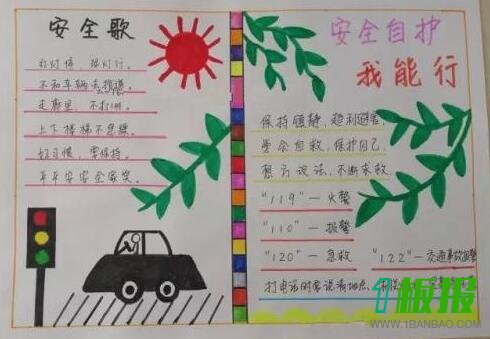 安全歌
红灯停,绿灯行。
不和车辆去拥道
走廊里,不打闹。
上下楼梯不急躁。
好习惯,要保持。
平平安安全家笑。
安全自护
我能行
保持镇静,趋利避害,
学会自救,保护自己,
想方设法,不断求救
"119"—火警
"110"—报警
"120"—急救 "122"—交通事故报警
打电话时要说清地点、
板报
WWW.1BANBAO.COM